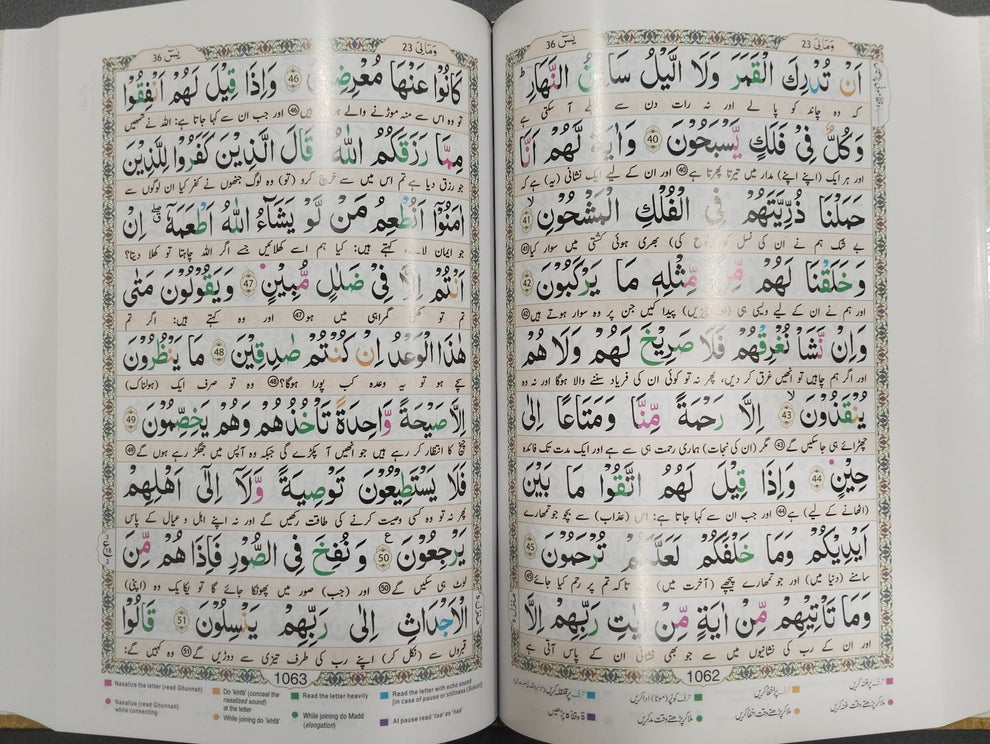 وَمَالِیَ 23
یٰسٓ 36
اَنْ تُدْرِكَ الْقَمَرَ وَلَا الَّيْلُ سَابِقُ النَّهَارِ ؕ
کہ وہ چاند کو پا لے اور نہ رات دن سے پہلے آ سکتی ہے
وَكُلٌّ فِیْ فَلَكٍ يَّسْبَحُوْنَ 40 وَاٰيَةٌ لَّهُمْ اَنَّا
اور ہر ایک (اپنے اپنے) مدار میں تیرتا پھرتا ہے 40 اور ان کے لیے ایک نشانی (یہ) ہے کہ
حَمَلْنَا ذُرِّيَّتَهُمْ فِی الْفُلْكِ الْمَشْحُوْنِ 41
بے شک ہم نے ان کی نسل کو (نوح کی) بھری ہوئی کشتی میں سوار کیا 41
وَخَلَقْنَا لَهُمْ مِّنْ مِّثْلِهٖ مَا يَرْكَبُوْنَ 42
اور ہم نے ان کے لیے ویسی ہی (اور چیزیں) پیدا کیں جن پر وہ سوار ہوتے ہیں 42
وَاِنْ نَّشَاْ نُغْرِقْهُمْ فَلَا صَرِيْخَ لَهُمْ وَلَا هُمْ
اور اگر ہم چاہیں تو انھیں غرق کر دیں، پھر نہ تو کوئی ان کی فریاد سننے والا ہوگا اور نہ وہ
يُنْقَذُوْنَ 43 اِلَّا رَحْمَةً مِّنَّا وَمَتَاعًا اِلٰی
چھڑائے ہی جا سکیں گے 43 مگر (ان کی نجات) ہماری رحمت ہی سے ہے اور ایک مدت تک فائدہ
حِيْنٍ 44 وَاِذَا قِيْلَ لَهُمُ اتَّقُوْا مَا بَيْنَ
(اٹھانے کے لیے) ہے 44 اور جب ان سے کہا جاتا ہے: اس (عذاب) سے بچو جو تمھارے
اَيْدِيْكُمْ وَمَا خَلْفَكُمْ لَعَلَّكُمْ تُرْحَمُوْنَ 45
سامنے (دنیا میں) اور جو تمھارے پیچھے (آخرت میں) تاکہ تم پر رحم کیا جائے 45
وَمَا تَاْتِيْهِمْ مِّنْ اٰيَةٍ مِّنْ اٰيٰتِ رَبِّهِمْ اِلَّا
اور ان کے رب کی نشانیوں میں سے جو بھی نشانی ان کے پاس آتی ہے
1062
یٰسٓ 36
وَمَالِیَ 23
كَانُوْا عَنْهَا مُعْرِضِيْنَ 46 وَاِذَا قِيْلَ لَهُمْ اَنْفِقُوْا
تو وہ اس سے منہ موڑنے والے ہی ہوتے ہیں 46 اور جب ان سے کہا جاتا ہے: اللہ نے تمھیں
مِمَّا رَزَقَكُمُ اللّٰهُ قَالَ الَّذِيْنَ كَفَرُوْا لِلَّذِيْنَ
جو رزق دیا ہے تم اس میں سے خرچ کرو (تو) وہ لوگ جنھوں نے کفر کیا ان لوگوں سے
اٰمَنُوْٓا اَنُطْعِمُ مَنْ لَّوْ يَشَآءُ اللّٰهُ اَطْعَمَهٗٓ اِنْ
جو ایمان لائے، کہتے ہیں: کیا ہم اسے کھلائیں جسے اگر اللہ چاہتا تو کھلا دیتا؟
اَنْتُمْ اِلَّا فِیْ ضَلٰلٍ مُّبِيْنٍ 47 وَيَقُوْلُوْنَ مَتٰی
تم تو کھلی گمراہی میں ہو 47 اور وہ کہتے ہیں: اگر تم
هٰذَا الْوَعْدُ اِنْ كُنْتُمْ صٰدِقِيْنَ 48 مَا يَنْظُرُوْنَ
سچے ہو تو یہ وعدہ کب پورا ہوگا؟ 48 وہ تو صرف ایک (ہولناک)
اِلَّا صَيْحَةً وَّاحِدَةً تَاْخُذُهُمْ وَهُمْ يَخِصِّمُوْنَ 49
چیخ کا انتظار کر رہے ہیں جو انھیں آ پکڑے گی جبکہ وہ آپس میں جھگڑ رہے ہوں گے 49
فَلَا يَسْتَطِيْعُوْنَ تَوْصِيَةً وَّلَآ اِلٰٓی اَهْلِهِمْ
پھر نہ تو وہ کسی وصیت کرنے کی طاقت رکھیں گے اور نہ اپنے اہل و عیال کے پاس
يَرْجِعُوْنَ 50 وَنُفِخَ فِی الصُّوْرِ فَاِذَا هُمْ مِّنَ
لوٹ ہی سکیں گے 50 اور (جب) صور میں پھونکا جائے گا تو یکایک وہ (اپنی)
الْاَجْدَاثِ اِلٰی رَبِّهِمْ يَنْسِلُوْنَ 51 قَالُوْا
قبروں سے (نکل کر) اپنے رب کی طرف تیزی سے دوڑیں گے 51 وہ کہیں گے:
1063
Nasalize the letter (read Ghunnah)
Nasaliza (read Ghunnah) while connecting
Do "ikhfâ" (conceal the nasalized sound) at the letter
While joining do "ikhfâ"
Read the letter heavily
While joining do Madd (elongation)
Read the letter with echo sound [in case of pause or stillness (Sukun)]
At pause read "taa" as "haa"